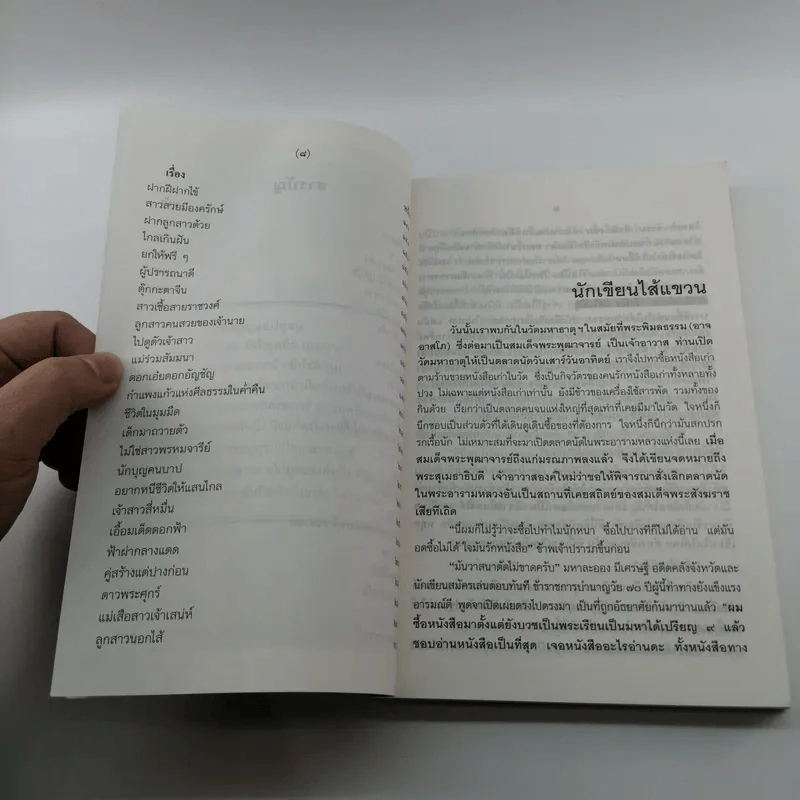 (๘)
เรื่อง
ฝากผีฝากไข้
สาวสวยมีองครักษ์
ฝากลูกสาวด้วย
ไกลเกินฝัน
ยกให้ฟรี ๆ
ผู้ปรารถนาดี
ตุ๊กกะตาจีน
สาวเชื้อสายราชวงศ์
ลูกสาวคนสวยของเจ้านาย
ไปดูตัวเจ้าสาว
แม่ร่วมสัมมนา
ดอกเอ๋ยดอกอัญชัญ
กำแพงแก้วแห่งศีลธรรมในค่ำคืน
ชีวิตในมุมมืด
เด็กมาถวายตัว
ไม่ใช่สาวพรหมจารีย์
นักบุญคนบาป
อยากหนีชีวิตให้แสนไกล
เจ้าสาวสี่หมื่น
เอื้อมเด็ดดอกฟ้า
ฟ้าฝากลางแดด
คู่สร้างแต่ปางก่อน
ดาวพระศุกร์
แม่เสือสาวเจ้าเสน่ห์
ลูกสาวนอกไส้
สารบัญ
นักเขียนไส้แขวน
วันนั้นเราพบกันในวัดมหาธาตุฯในสมัยที่พระพิมลธรรม (อาจ
อาสโภ) ซึ่งต่อมาเป็นสมเด็จพระพุฒาจารย์ เป็นเจ้าอาวาส ท่านเปิด
วัดมหาธาตุให้เป็นตลาดนัดวันเสาร์วันอาทิตย์ เราจึงไปหาซื้อหนังสือเก่า
ตามร้านขายหนังสือเก่าในวัด ซึ่งเป็นกิจวัตรของคนรักหนังสือเก่าทั้งหลายทั้ง
ปวง ไม่เฉพาะแต่หนังสือเก่าเท่านั้น ยังมีข้าวของเครื่องใช้สารพัด รวมทั้งของ
กินด้วย เรียกว่าเป็นตลาดคนจนแห่งใหญ่ที่สุดเท่าที่เคยมีมาในวัด ใจหนึ่งก็
นึกชอบเป็นส่วนตัวที่ได้เดินดูเดินซื้อของที่ต้องการ ใจหนึ่งก็นึกว่ามันสกปรก
รกเรื้อนัก ไม่เหมาะสมที่จะมาเปิดตลาดนัดในพระอารามหลวงแห่งนี้เลย เมื่อ
สมเด็จพระพุฒาจารย์ถึงแก่มรณภาพลงแล้ว จึงได้เขียนจดหมายถึง
พระสุเมธาธิบดี เจ้าอาวาสองค์ใหม่ว่าขอให้พิจารณาสั่งเลิกตลาดนัด
ในพระอารามหลวงอันเป็นสถานที่เคยสถิตย์ของสมเด็จพระสังฆราช
เสียทีเถิด
"นี่ผมก็ไม่รู้ว่าจะซื้อไปทำไมนักหนา ซื้อไปบางทีก็ไม่ได้อ่าน แต่มัน
อดซื้อไม่ได้ ใจมันรักหนังสือ" ข้าพเจ้าปรารภขึ้นก่อน
"มันวาสนาตัดไม่ขาดครับ" มหาละออง มีเศรษฐี อดีตคลังจังหวัดและ
นักเขียนสมัครเล่นตอบทันที ข้าราชการบำนาญวัย ๗๐ ปีผู้นี้ท่าทางยังแข็งแรง
อารมณ์ดี พูดจาเปิดเผยตรงไปตรงมา เป็นที่ถูกอัธยาศัยกันมานานแล้ว "ผม
ซื้อหนังสือมาตั้งแต่ยังบวชเป็นพระเรียนเป็นมหาได้เปรียญ ๙ แล้ว
ชอบอ่านหนังสือเป็นที่สุด เจอหนังสืออะไรอ่านดะ ทั้งหนังสือทาง